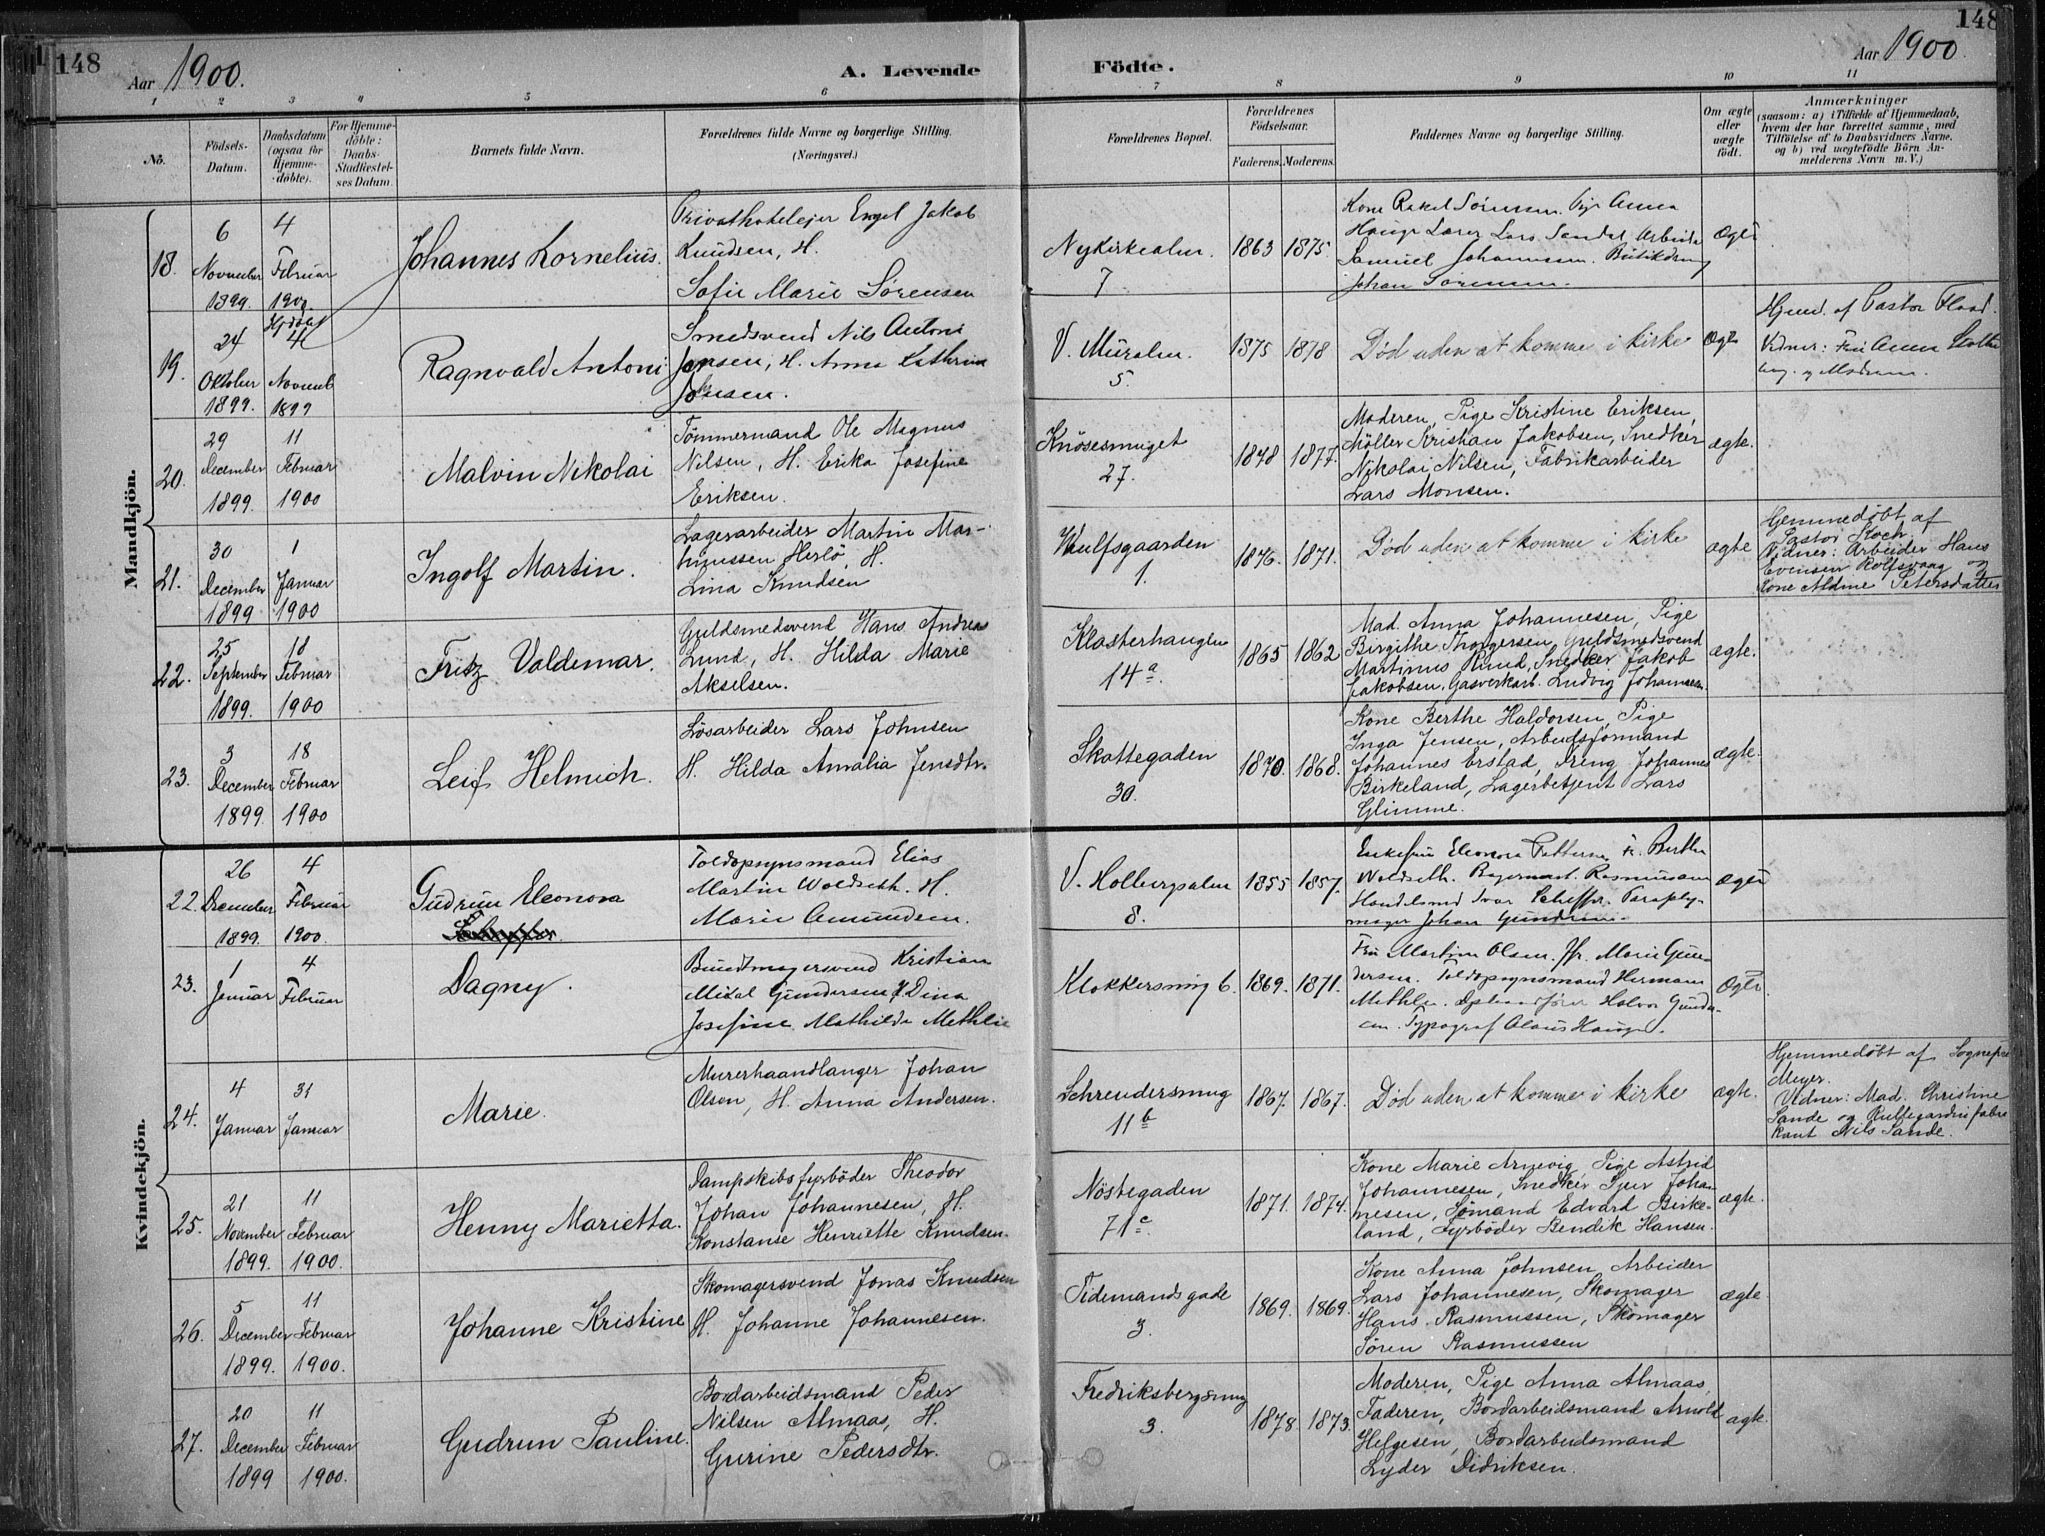 148
Aar 1900.
A. Levende
1 2 3 4 5 6
No.
Födsels-
Datum.
Daabsdatum
(ogsaa for
Hjemme-
döbte).
For Hjemme-
döbte:
Daabs-
Stadfæstel-
ses Datum.
Barnets fulde Navn.
Forældrenes fulde Navne og borgerlige Stilling.
(Næringsvei.)
Födte.
Aar 1900.
148
7 8 9 10 11
Forældrenes Bopæl.
Forældrenes
Födselsaar.
Faderens. Moderens.
Faddernes Navne og borgerlige Stilling.
Om ægte
eller
uægte
födt.
Anmærkninger
(saasom: a) i Tilfælde af Hjemmedaab,
hvem der har forrettet samme, med
Tilföielse af to Daabsvidners Navne.
og b) ved uægtefödte Börn An-
melderens Navn m. V.)
Mandkjön.
18.
6
November
1899.
4
Februar
1900
Johannes Kornelius.
Privathoteleier Engel Jakob
Knudsen, H.
Sofie Marie Sørensen
Nykirkealm.
7
1863 1875.
Kone Rakel Sörensen. Pige Anna
Hauge Lærer Lars Sandal Arbeider
Samuel Johannesen. Butikdreng
Johan Sörensen.
Ægte
19.
24
Oktober
1899.
Hjdöbt
4
Novemb
1899
Ragnvald Antoni
Smedsvend Nils Antoni
Jensen, H. Anna Kathrine
V. Muralm.
5.
1875 1878
Död uden at komme i kirke
Ægte
Hjemd. af Pastor Flood.
Vidner: Frü Anna
og Moderen.
20.
29
December
1899.
11
Februar
1900
Malvin Nikolai
Tömmermand Ole Magnus
Nilsen, H. Erika Josefine
Eriksen.
Knösesmuget
27.
1878 1877.
Moderen, Pige Kristine Eriksen,
Möller Kristian Jakobsen, Snedker
Nikolai Nilsen, Fabrikarbeider
Lars Monsen.
ægte.
21.
30
December
1899
1
Januar
1900
Ingolf Martin.
Lagerarbeider Martin Mar-
tinussen Herlö, H.
Lina Knudsen
Wulfsgaarden
1.
1876. 1871.
Död uden at komme i kirke
ægte
Hjemmedöbt af
Pastor Koch
Vidner: Arbeider Hans
Evensen Rolfsvaag og
Kone Aldine Petersdatter
22.
25
September
1899.
18
Februar
1900
Fritz Valdemar.
Guldsmedsvend Hans Andreas
Lund, H. Hilda Marie
Akselsen.
Klosterhaugen
14a.
1865 1862
Mad. Anna Johannesen, Pige
Birgithe Thorgersen, Guldsmedsvend
Martinus Rund, Snedker Jakob
Jakobsen, Gasverkarb. Ludvig Johannesen.
ægte.
23.
3
December
1899.
18
Februar
1900
Leif Helmich.
Lösarbeider Lars Johnsen
H. Hilda Amalia Jensdtr.
Skottegaden
30.
1870. 1868.
Kone Berthe Haldorsen, Pige
Inga Jensen, Arbeidsformand
Johannes Erstad, Dreng Johannes
Birkeland, Lagerbetjent Lars
Glimme.
ægte.
Kvindekjön.
22.
26
December
1899.
4
Februar
1900.
Gudrun Eleonora
Toldopsynsmand Elias
Martin Woldseth. H.
Marie Amundsen.
V. Holbergsalm
8.
1855 1857.
Enkefrü Eleonora Pettersen Fr. Berthe
Woldseth. Bagermest. Rasmussen
Handelsmd Ivar Scheffer. Paraply-
mager Johan Gundersen.
Ægte
23.
1
Januar
4
Februar
Dagny.
Buntmagersvend Kristian
Midal Gundersen H Dina
Josefine Mathilde Methlie
Klokkersmug 6.
1869. 1871.
Frü Martine Olsen. Jfr. Marie Gun-
dersen. Toldopsynsmand Herman
Methlie. Halvor Gunder-
sen. Typograf Olaus Hauge.
Ægte
24.
4
Januar
31
Januar
Marie.
Murerhaandlanger Johan
Olsen, H. Anna Andersen.
Schreudersmug
11b
1867. 1867.
Död uden at komme i kirke
ægte.
Hjemmedöbt af Sognepr
Meyer.
Vidner: Mad. Christine
Sande og Rullegardinfabri
kant Nils Sande.
25.
21
November
1899.
11
Februar
1900.
Henny Marietta.
Dampskibsfyrböder Theodor
Johan Johannesen, H.
Konstanse Henriette Knudsen.
Nöstegaden
71c.
1871. 1874.
Kone Marie Arnevig, Pige Astrid
Johannesen, Snedker Sjur Johan-
nesen, Sömand Edvard Birke-
land, Fyrböder Bendik Hansen.
ægte.
26.
5
December
1899.
11
Februar
1900.
Johanne Kristine
Skomagersvend Jonas Knudsen
H. Johanne Johannesen.
Tidemandsgade
3.
1869. 1869.
Kone Anna Johnsen, Arbeider
Lars Johannesen, Skomager
Hans Rasmussen, Skomager
Sören Rasmussen
ægte
27.
20
December
1899
11
Februar
1900.
Gudrun Pauline.
Bordarbeidsmand Peder
Nilsen Almaas, H.
Gurine Pedersdtr.
Fredriksbergsmug
3.
1878 1873.
Moderen, Pige Anna Almaas,
Faderen, Bordarbeidsmand Arnold
Helgesen, Bordarbeidsmand
Lyder Didriksen.
ægte.